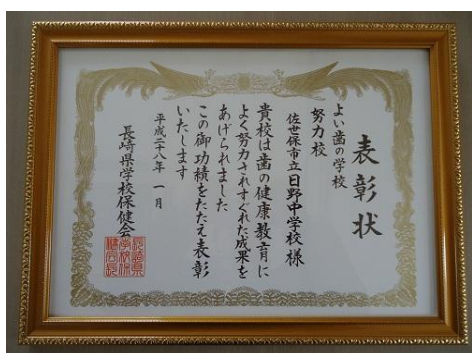 表彰状
よい歯の学校
努力校
佐世保市立日野中学校様
貴校は歯の健康教育に
よく努力されすぐれた成果を
あげられました
この御功績をたたえ表彰
いたします
平成二十八年 一月
長崎県学校保健会